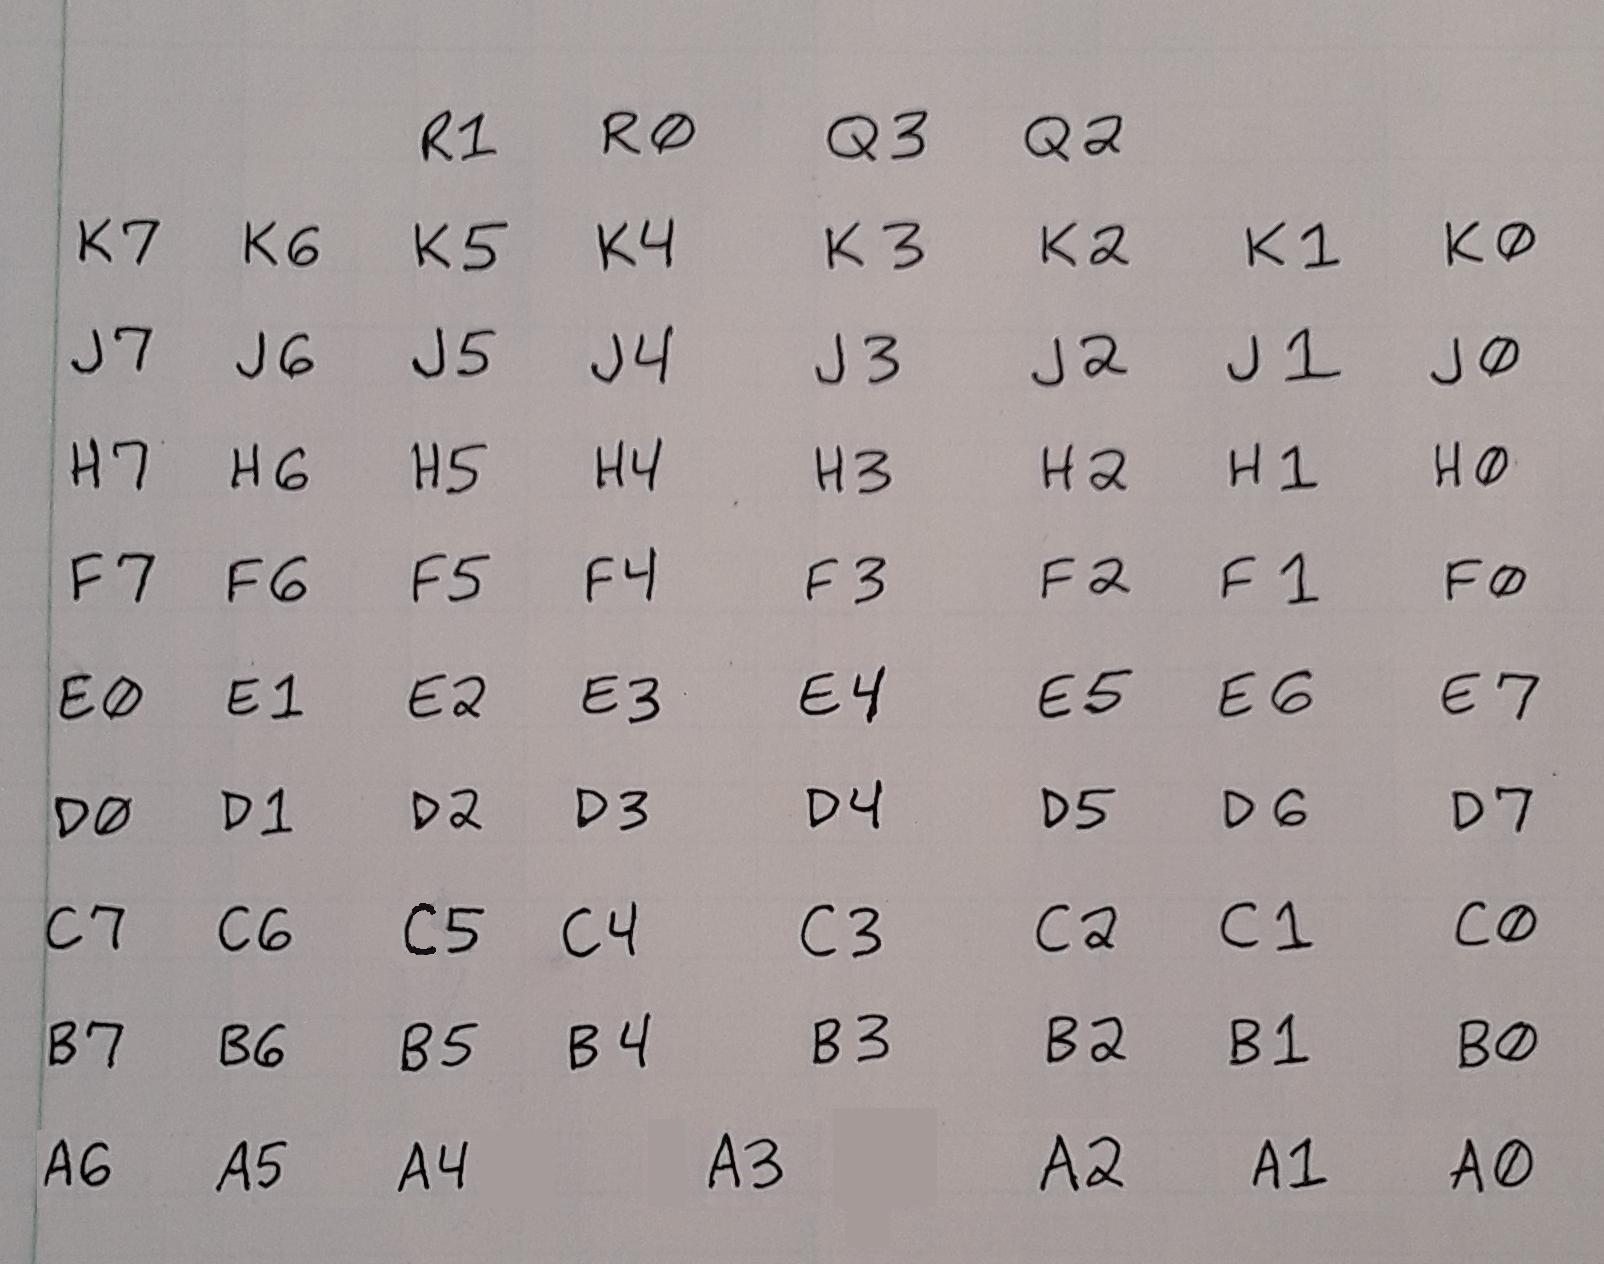 R1 R0 Q3 Q2
K7 K6 K5 K4 K3 K2 K1 K0
J7 J6 J5 J4 J3 J2 J1 J0
H7 H6 H5 H4 H3 H2 H1 H0
F7 F6 F5 F4 F3 F2 F1 F0
E0 E1 E2 E3 E4 E5 E6 E7
D0 D1 D2 D3 D4 D5 D6 D7
C7 C6 C5 C4 C3 C2 C1 C0
B7 B6 B5 B4 B3 B2 B1 B0
A6 A5 A4 A3 A2 A1 A0